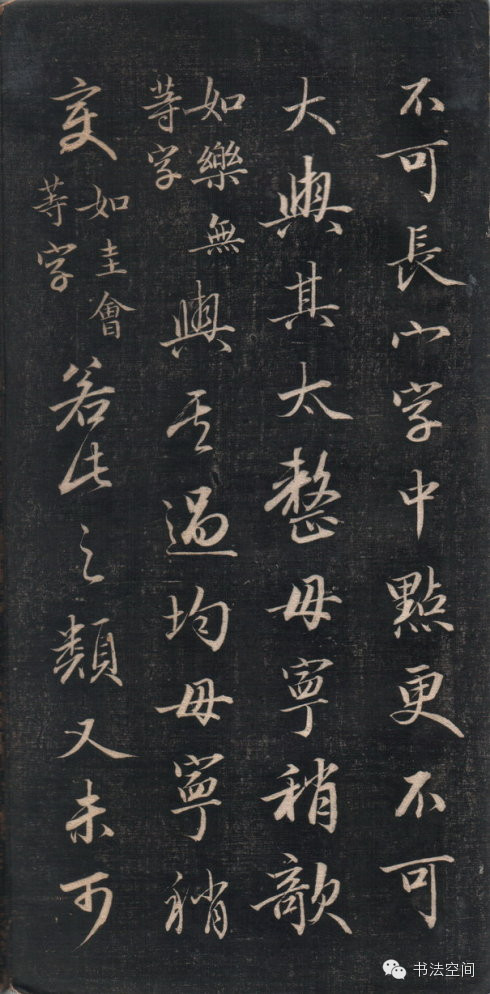 不可長宀字中點更不可
大與其太整毋寧稍欹
如樂無
等字
與其過均毋寧稍
变
如圭會
等字
若此之類又未可
书法空间